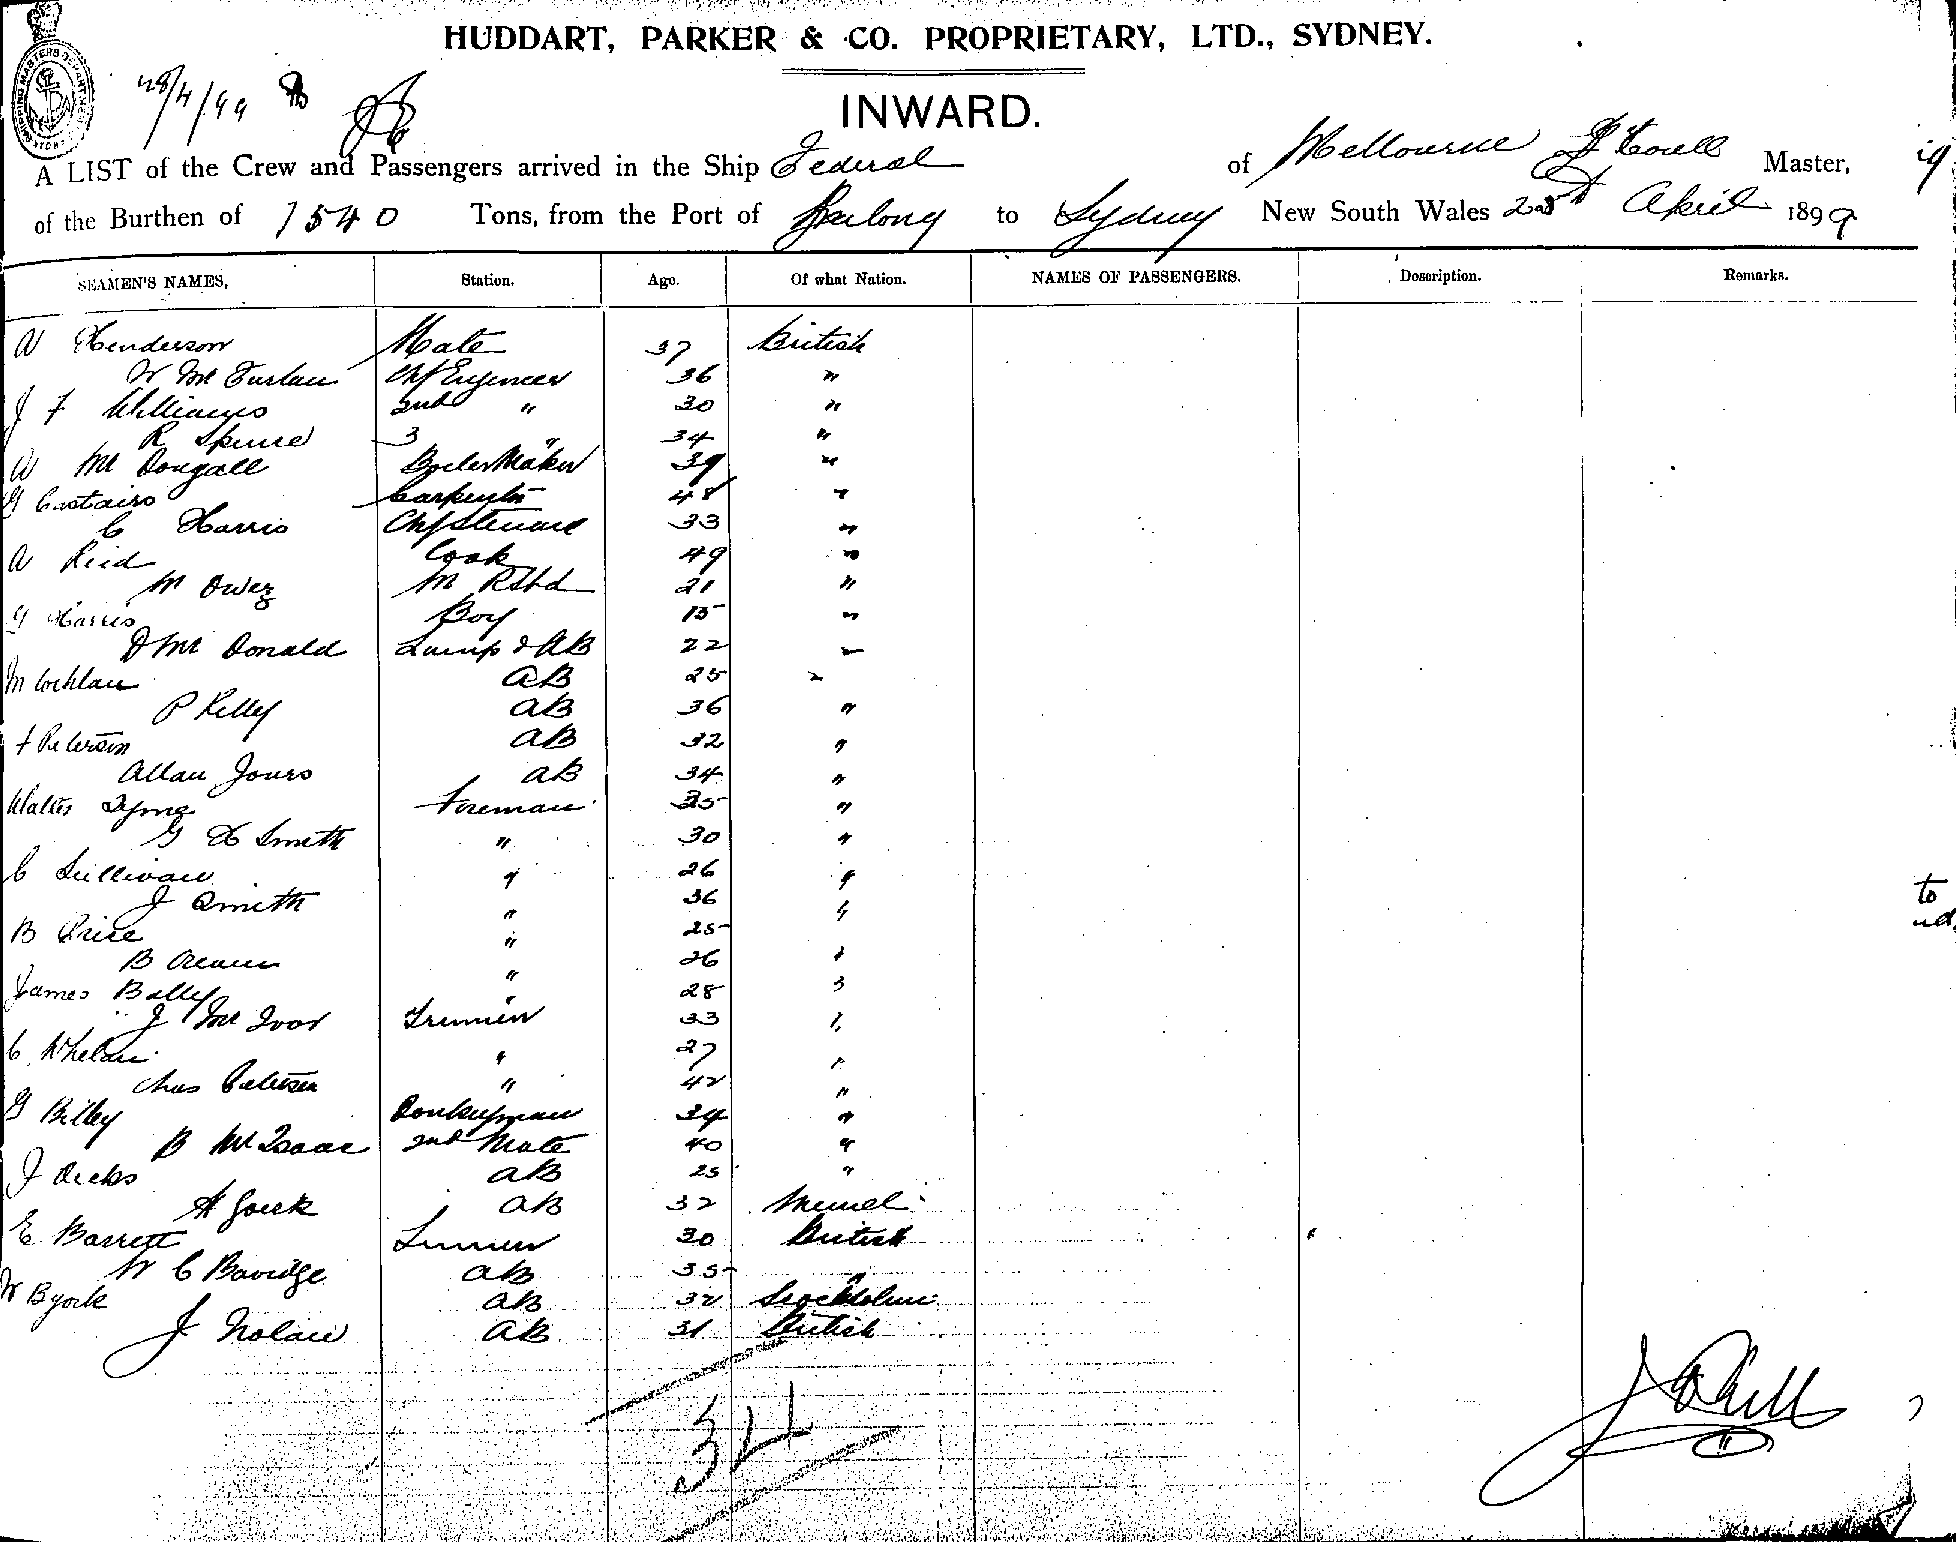 HUDDART, PARKER & CO. PROPRIETARY, LTD., SYDNEY.
28/4/99
INWARD.
A LIST of the Crew and Passengers arrived in the Ship Federal of Melbourne Master,
of the Burthen of 1540 Tons, from the Port of Geelong to Sydney New South Wales April 1899
SEAMEN'S NAMES, Station. Age. Of what Nation. NAMES OF PASSENGERS. Description. Remarks.
A Henderson Mate 37 British
W Mc Farlan Chf Engineer 36 "
J F Williams 2nd " 30 "
R Spence 3 " 34 "
A Mc Dougall BoilerMaker 39 "
G Castairs Carpenter 48 "
C Harris Chf Steward 33 "
A Reid Cook 49 "
M Owez M R Std 21 "
G Harris Boy 15 "
D Mc Donald Lamp & AB 22 "
M Cochlan AB 25 "
P Kelly AB 36 "
F Peterson AB 32 "
Allan Jones AB 34 "
Walter Foreman 35 "
G H Smith " 30 "
C Sullivan " 26 "
J Smith " 36 "
B Price " 25 "
B " 26 "
James Bailey " 28 "
J Mc Ivor Trimmer 33 "
C Whelan " 27 "
Chas Petersen " 42 "
G Bilby Donkeyman 34 "
B McIsaac 2nd Mate 40 "
J Dicks AB 25 "
A Goerk AB 32 Memel
E Barrett Trimmer 30 British
W C Bavidge AB 35 "
W Byork AB 32 Stockholm
J Nolan AB 31 British
34